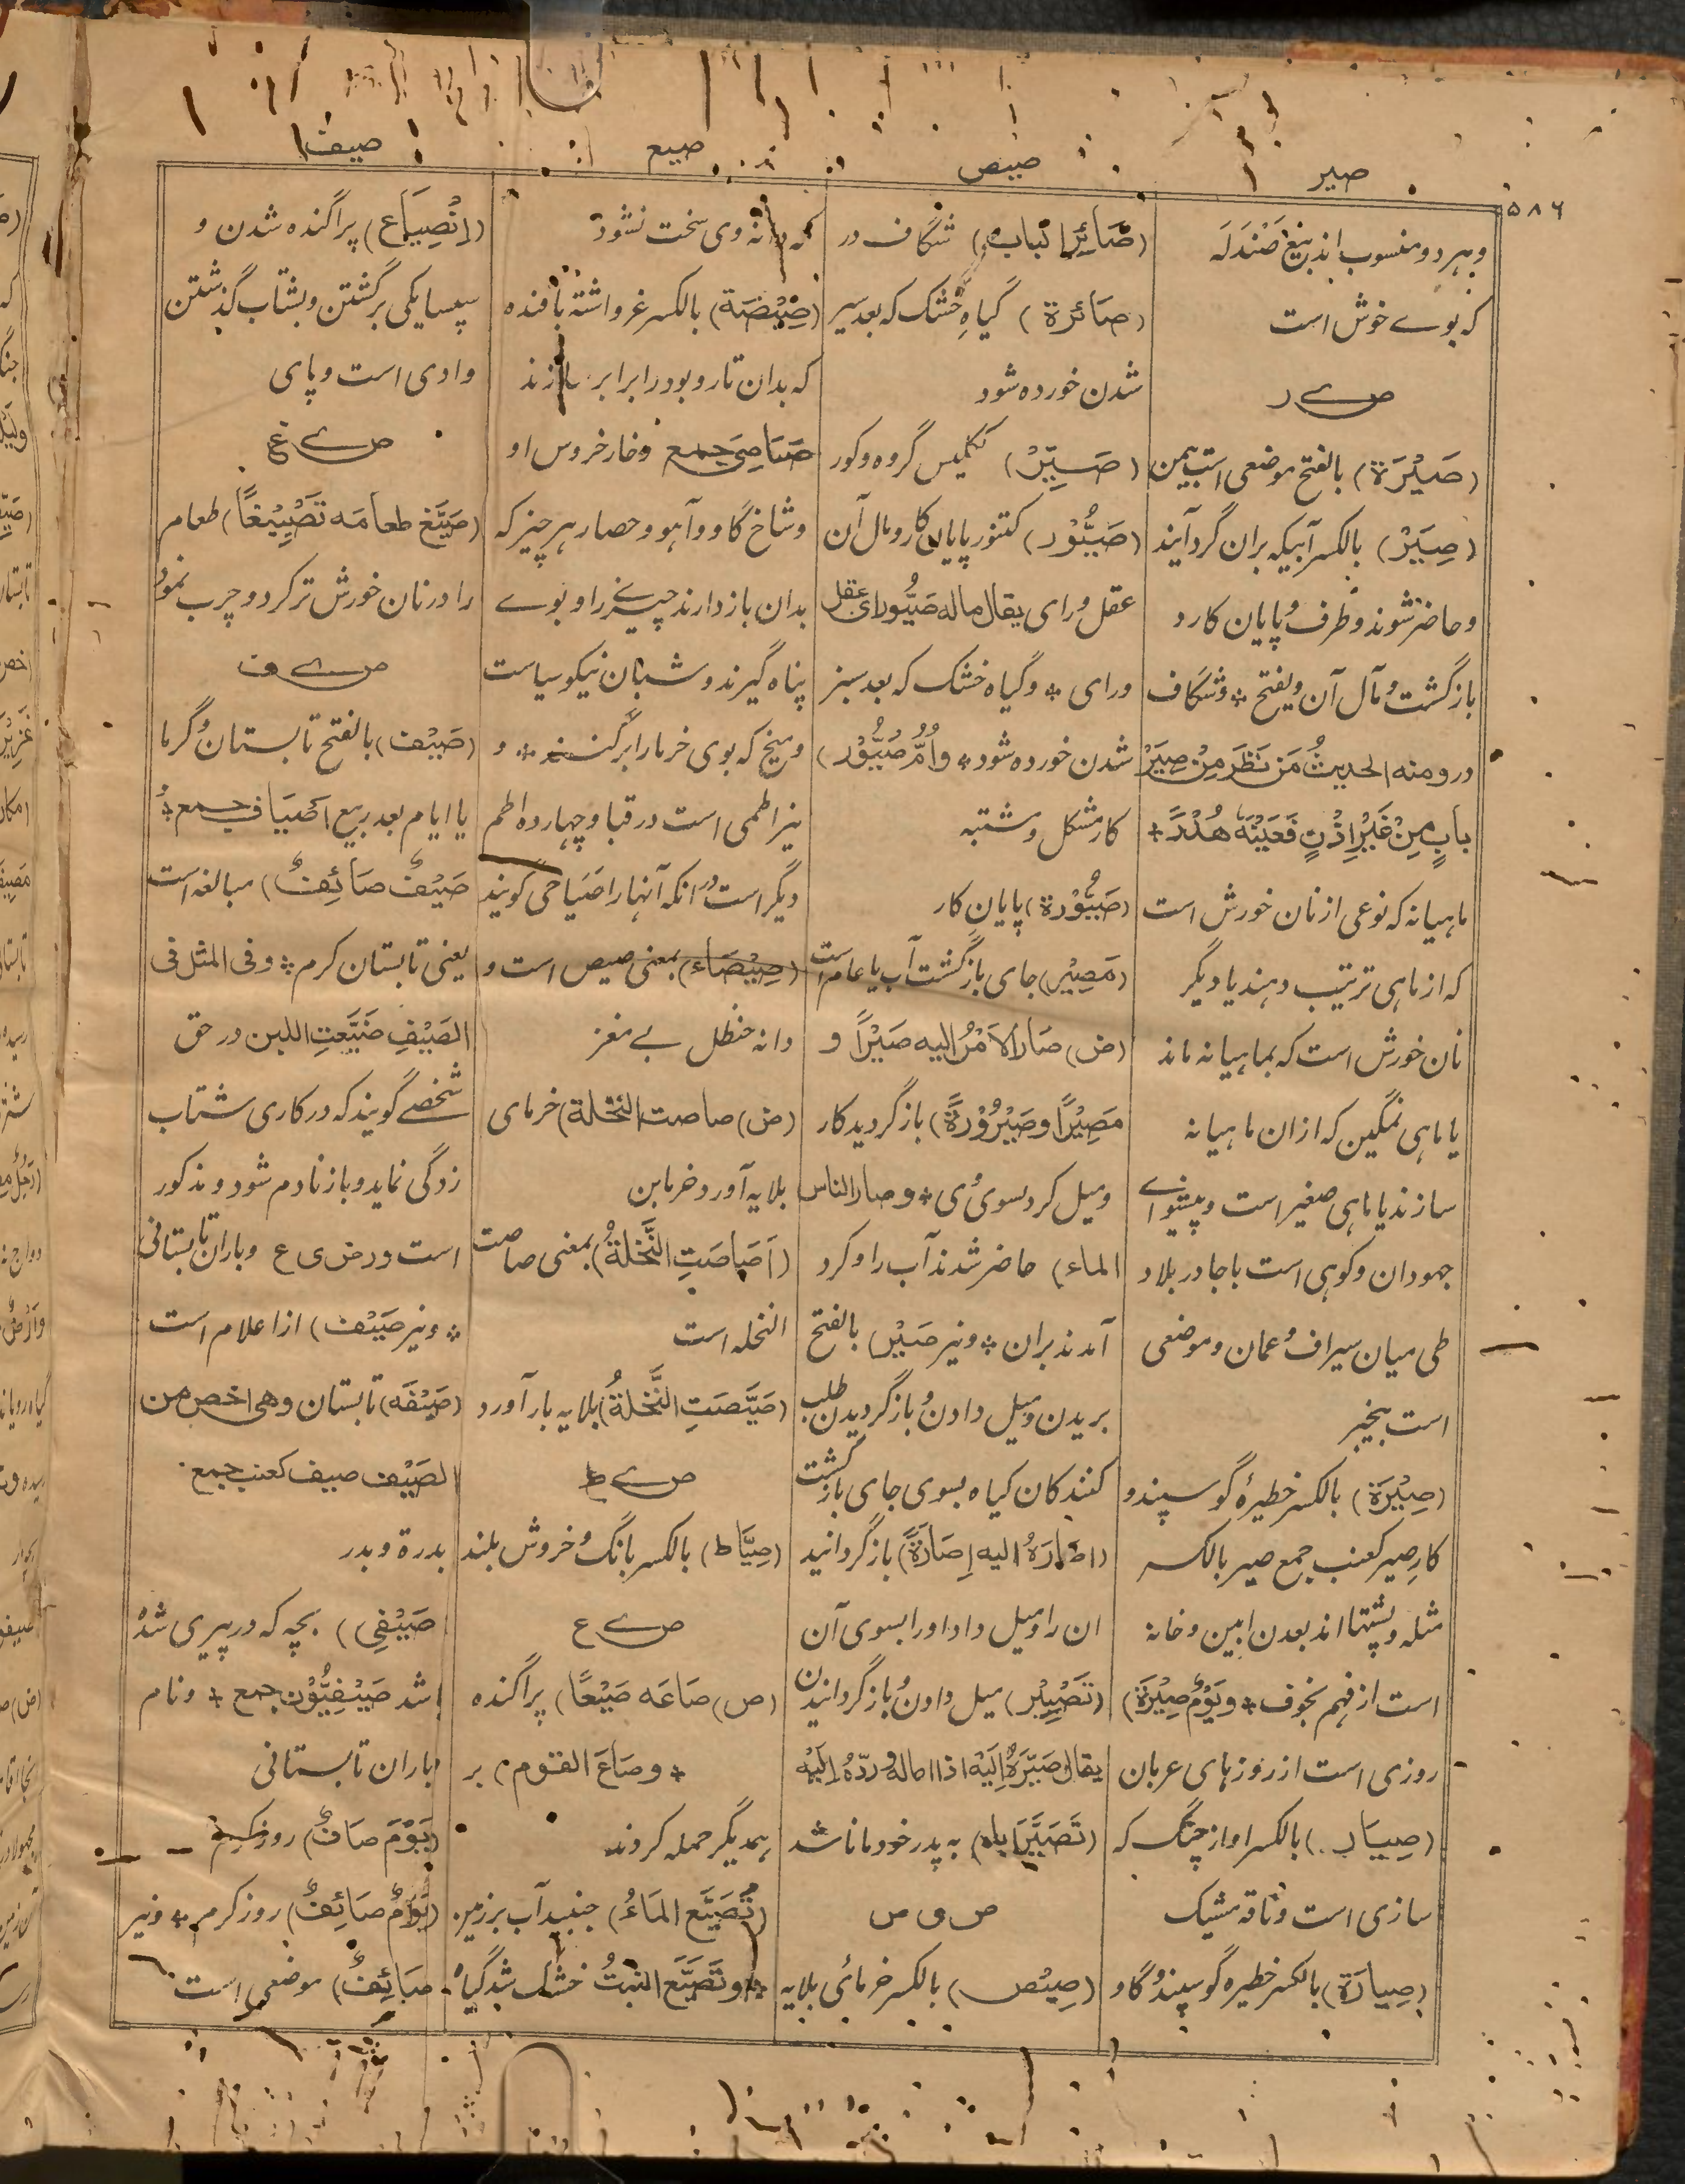 صیر
صیص
صیع
صیف
۵۸۶
و بهر دو منسوب اند بنیغ صَنْدَلَه
که بوے خوش است
ص ے ر
(صَیْرَة) بالفتح موضعی است بیمن
(صِیَرْ) بالکسر آبیکه بران گرد آیند
و حاضر شوند و طرف و پایان کار و
بازگشت و مآل آن و یفتح * و شگاف
در و منه الحدیثُ مَن نَظَرَ مِنْ صِیَرْ
بابٍ مِنْ غَیْرِ اِذْنٍ فَعَیْنُهَ هَدَرٌ *
ماهیانه که نوعی از نان خورش است
که از ماهی ترتیب دهند یا دیگر
نان خورش است که بماهیانه ماند
یا ماهی نمگین که ازان ماهیانه
سازند یا ماهی صغیر است و پیشواے
جهودان و کوهی است باجا در بلاد
طی میان سیراف و عمان و موضعی
است بنجیر
(صِیْرَة) بالکسر خطیرهٔ گوسپند و
کار صِیر کعنب جمع صیر بالکسر
مثله و پشتها اند بعدن ابین و خانه
است از فهم بخوف * و یَوْمُ صِیْرَة)
روزی است از روزهای عربان
(صِیَار) بالکسر اواز چنگ که
سازی است و ناقه مشیک
(صِیارَة) بالکسر خطیره گوسپند و گاو
(صَائِرالباب) شگاف در
(صَائرة) گیاهِ خشک که بعد سیر
شدن خورده شود
(صَیِّرْ) ککیس گروه و کور
(صَیُّوْر) کتنور پایان کار و مآل آن
عقل و رای یقال ماله صَیُّور ای عقل
و رای * و گیاه خشک که بعد سبز
شدن خورده شود * و اُمُّ صَیُّوْر)
کار مشکل و مشتبه
(صَیُّوْرة) پایان کار
(مَصِیْر) جای بازگشت آب یا عام است
(ض) صَارَ الاَمْرُ الیه صَیْرًا و
مَصِیْرًا و صَیْرُوْرَةً) باز گردید کار
و میل کرد بسوی وی * و صار الناس
الماء) حاضر شدند آب را و گرد
آمدند بران * و نیر صَیْر) بالفتح
بریدن و میل دادن و باز گردیدن طلب
کنندگان گیاه بسوی جای بازگشت
(اصَارَهُ الیه اِصَارَةً) باز گردانید
ان را و میل داد اورا بسوی آن
(تَصْیِیْر) میل دادن و باز گردانیدن
یقال صَیَّرَهُ اِلَیْه اذا اماله و ردّهُ اِلَیْه
(تَصَیَّرَ اباه) به پدر خود مانا شد
ص ی ص
(صِیْص) بالکسر خرمائی بلایه
که دانه وی سخت نشود
(صِیْصَة) بالکسر غرواشته بافنده
که بدان تار و پود را برابر سازند
صَیَاصِی جمع و خار خروس او
و شاخ گاو و آهو و حصار هر چیز که
بدان باز دارند چیزے را و بوے
پناه گیرند و شبان نیکو سیاست
و میخ که بوی خرما را برکنند * و
نیز اطمی است در قبا و چهارده اطم
دیگر است و انکه آنها را صَیَاصی گویند
(صِیْصَاء) بمعنی صیص است و
دانه حنظل بے مغز
(ض) صاصت النخلة) خرمای
بلایه آورد خرمابن
(اَصَاصَتِ النَّخلةُ) بمعنی صاصت
النخله است
(صَیَّصَتِ النَّخلةُ) بلایه بار آورد
ص ے ط
(صِیَاط) بالکسر بانگ و خروش بلند
ص ے ع
(ص) صَاعَه صَیْعًا) پراگنده
* و صَاعَ القوم) بر
یمدیگر حمله کردند
(تَصَیَّع المَاءُ) جنبید آب بر زمین
* و تَصَیَّع النبتُ خشک شد گیاه
(اِنْصِیَاع) پراگنده شدن و
سپسایکی برگشتن و بشتاب گذشتن
وادی است و پای
ص ے غ
(صَیَّغ طعامَه تَصْیِیْغًا) طعامر
را در نان خورش تر کرد و چرب نمود
ص ے ف
(صَیْف) بالفتح تابستان و گرما
یا ایام بعد ربیع اَصْیَاف جمع *
صَیْفٌ صَائِفٌ) مبالغه است
یعنی تابستان گرم * و فی المثل فی
الصَیْفِ ضَیَّعَتِ اللبن در حق
شخصے گویند که در کاری شتاب
زدگی نماید و باز نادم شود و مذکور
است در ض ی ع و باران تابستانی
* و نیر صَیْف) از اعلام است
(صَیْفَه) تابستان و هی اخص من
الصَیْف صیف کعنب جمع
بدرة و بدر
صَیْفِی) بچه که در پیری شد
باشد صَیْفِیُّوْن جمع * و نام
باران تابستانی
(یَوْمَ صَافٌ) روز گرم
(یَوْمٌ صَائِفٌ) روز گرم * و نیر
صَائِفٌ) موضعی است